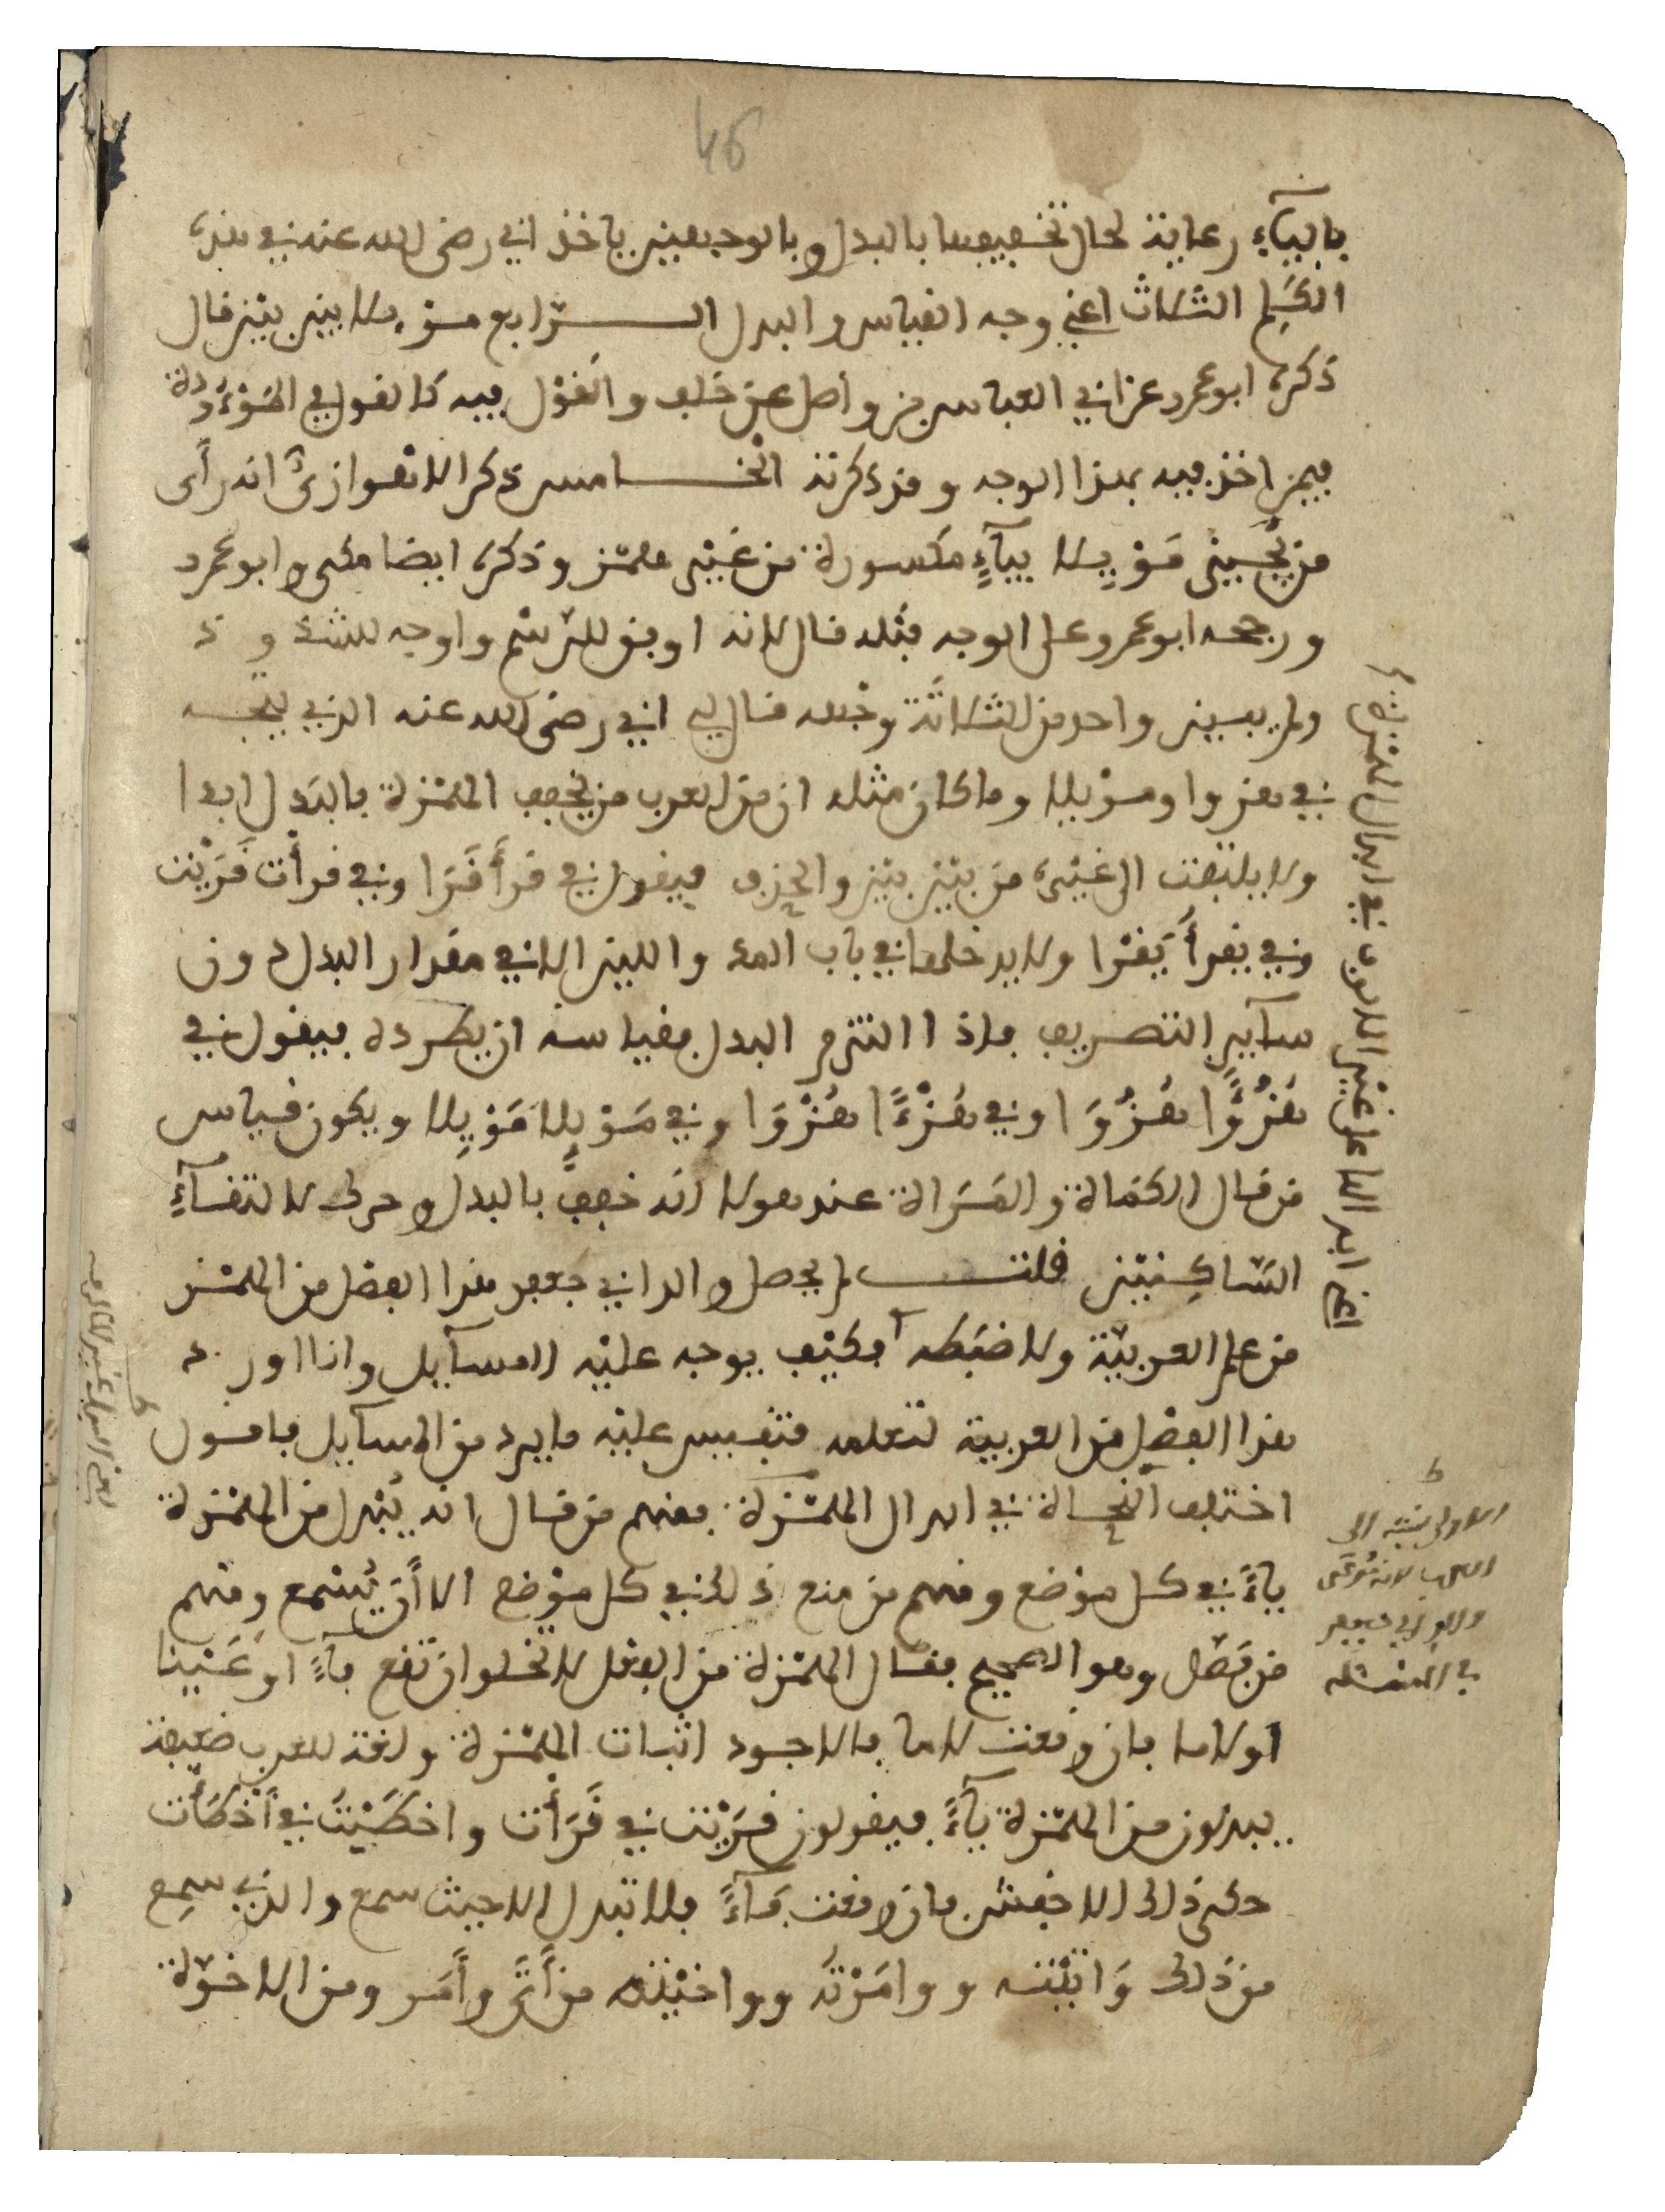 46
بالياء رعاية لحال تخفيفها بالبدل وبالوجهين ياخذ ابي رضي الله عنه في هذه
الكلم الثلاث اعني وجه القياس والبدل الرابع موئلا بين بين قال
ذكره ابو عمرو عن ابي العباس بن واصل عن خلف والقول فيه كالقول في الموءودة
فيمن اخذ فيه بهذا الوجه وقد ذكرته الخامس ذكر الاهوازي انه رأى
من يجيز مَوْيِلا بيآءٍ مكسورة من غير همز وذكره ايضا مكي وابو عمرو
ورجحه ابو عمرو على الوجه قبله قال لانه اوفق للرسم واوجه للشذوذ
ولم يبين واحد من الثلاثة وجهه قال لي ابي رضي الله عنه الذي يتجه
في هزوا وموئلا وما كان مثله ان من العرب من يخفف الهمزة بالبدل ابدا
ولا يلتفت الى غيره من بين بين والحذف فيقول في قرأ قَرَا وفي قرأت قَرَيْت
وفي يقرأ يَقْرا ولا يدخلها في باب المد واللين الا في مقدار البدل دون
سآير التصريف فاذا التزم البدل فقياسه ان يطرده فيقول في
هُزُؤًا هُزُوَا وفي هُزْءًا هُزْوَا وفي مَوْئِلا مَوْيِلا ويكون قياس
من قال الكمَاة والمَرَاة عند هولا انه خفف بالبدل وحرك لالتقآءِ
السّاكِنَيْن قلت لم يحصل والد ابي جعفر هذا الفصل من الهمز
من علم العربيّة ولا ضبَطه فكيف يوجه عليْه المسآيل وانا اورد
هذا الفصل من العربية لتعلمه فتقيس عليْه ما يرد من المسآيل فاقول
اختلف النحاة في ابدال الهمْزة فمنهم من قال انه يُبْدل من الهمْزة
يآءً في كل موْضع ومنهم من منع ذلك في كل موْضع الا أَن يُسْمع ومنهم
من فَصّل وهو الصحيح فقال الهمْزة من الفعل لا تخلو ان تقع فآءً او عَيْنا
او لاما فان وقعت لاما فالاجود اثبات الهمْزة ولغة للعرب ضعيفة
يبدلون من الهمْزة يآءً فيقولون قَرَيْت في قَرَأْت واخطَيْتَ في أَخْطأْت
حكى ذلك الاخفش فان وقعت فَآءً فلا تبدل الا حيث سمع والذي سمع
من ذلك وَاتيْته ووامَرْته وواخيْته من أَتَى وأَمَر ومن الاخوّة
الاولى ينبه الى
ولد ابي جعفر
في المسئلة